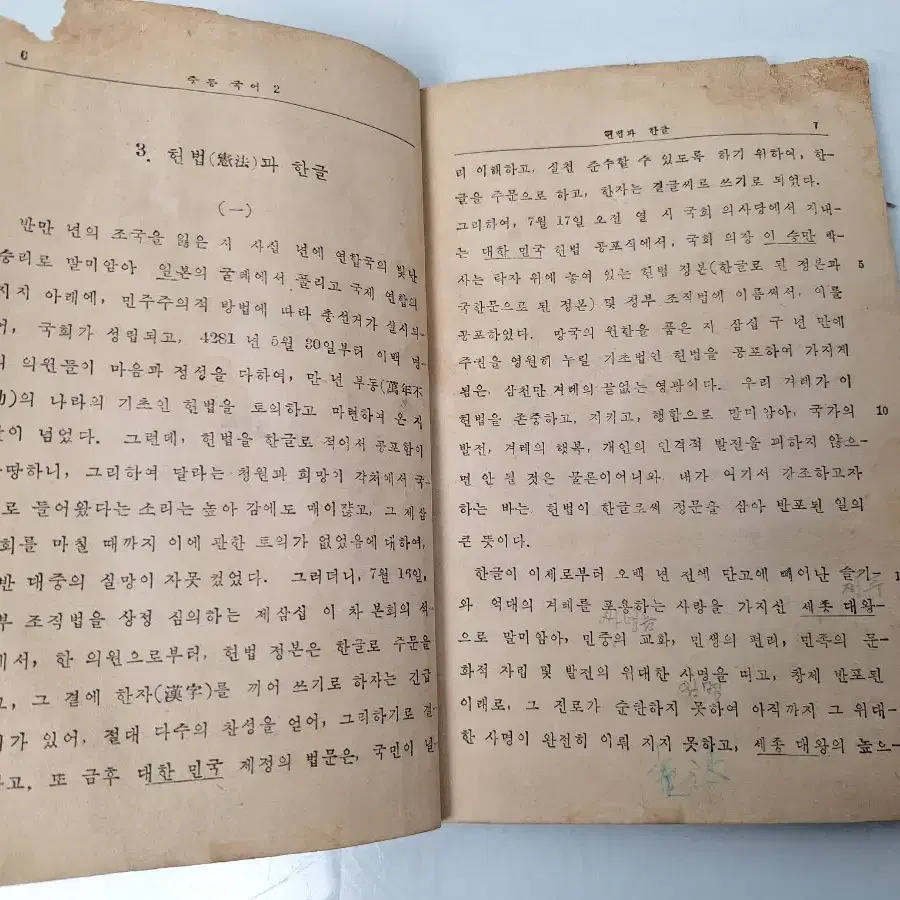 6
중등 국어 2
3. 헌법(憲法)과 한글
(一)
반만 년의 조국을 잃은 지 사십 년에 연합국의 빛난
승리로 말미암아 일본의 굴레에서 풀리고 국제 연합의
지지 아래에, 민주주의적 방법에 따라 총선거가 실시되-
어, 국회가 성립되고, 4281 년 5월 30일부터 이백 명-
의 의원들이 마음과 정성을 다하여, 만 년 부동(萬年不
動)의 나라의 기초인 헌법을 토의하고 마련하여 온 지
달이 넘었다. 그런데, 헌법을 한글로 적어서 공포함이
마땅하니, 그리하여 달라는 청원과 희망이 각처에서 국-
로 들어왔다는 소리는 높아 감에도 매이쟎고, 그 제삼
회를 마칠 때까지 이에 관한 토의가 없었음에 대하여,
반 대중의 실망이 자못 컸었다. 그러더니, 7월 16일,
부 조직법을 상정 심의하는 제삼십 이 차 본회의 석
에서, 한 의원으로부터, 헌법 정본은 한글로 주문을
고, 그 곁에 한자(漢字)를 끼어 쓰기로 하자는 긴급
의가 있어, 절대 다수의 찬성을 얻어, 그리하기로 결-
고, 또 금후 대한 민국 제정의 법문은, 국민이 널-
헌법과 한글
7
리 이해하고, 실천 준수할 수 있도록 하기 위하여, 한-
글을 주문으로 하고, 한자는 곁글씨로 쓰기로 되었다.
그리하여, 7월 17일 오전 열 시 국회 의사당에서 지내-
는 대한 민국 헌법 공포식에서, 국회 의장 이 승만 박-
사는 타자 위에 놓여 있는 헌법 정본(한글로 된 정본과 5
국한문으로 된 정본) 및 정부 조직법에 이름써서, 이를
공포하였다. 망국의 원한을 품은 지 삼십 구 년 만에
주권을 영원히 누릴 기초법인 헌법을 공포하여 가지게
됨은, 삼천만 겨레의 끝없는 영광이다. 우리 겨레가 이
헌법을 존중하고, 지키고, 행함으로 말미암아, 국가의 10
발전, 겨레의 행복, 개인의 인격적 발전을 꾀하지 않으-
면 안 될 것은 물론이어니와, 내가 여기서 강조하고자
하는 바는, 헌법이 한글로써 정문을 삼아 반포된 일의
큰 뜻이다.
한글이 이제로부터 오백 년 전에 단고에 빼어난 슬기- 1
와 억대의 겨레를 포용하는 사랑을 가지신 세종 대왕-
으로 말미암아, 민중의 교화, 민생의 편리, 민족의 문-
화적 자립 및 발전의 위대한 사명을 띠고, 창제 반포된
이래로, 그 진로가 순탄하지 못하여 아직까지 그 위대-
한 사명이 완전히 이뤄 지지 못하고, 세종 대왕의 높으-